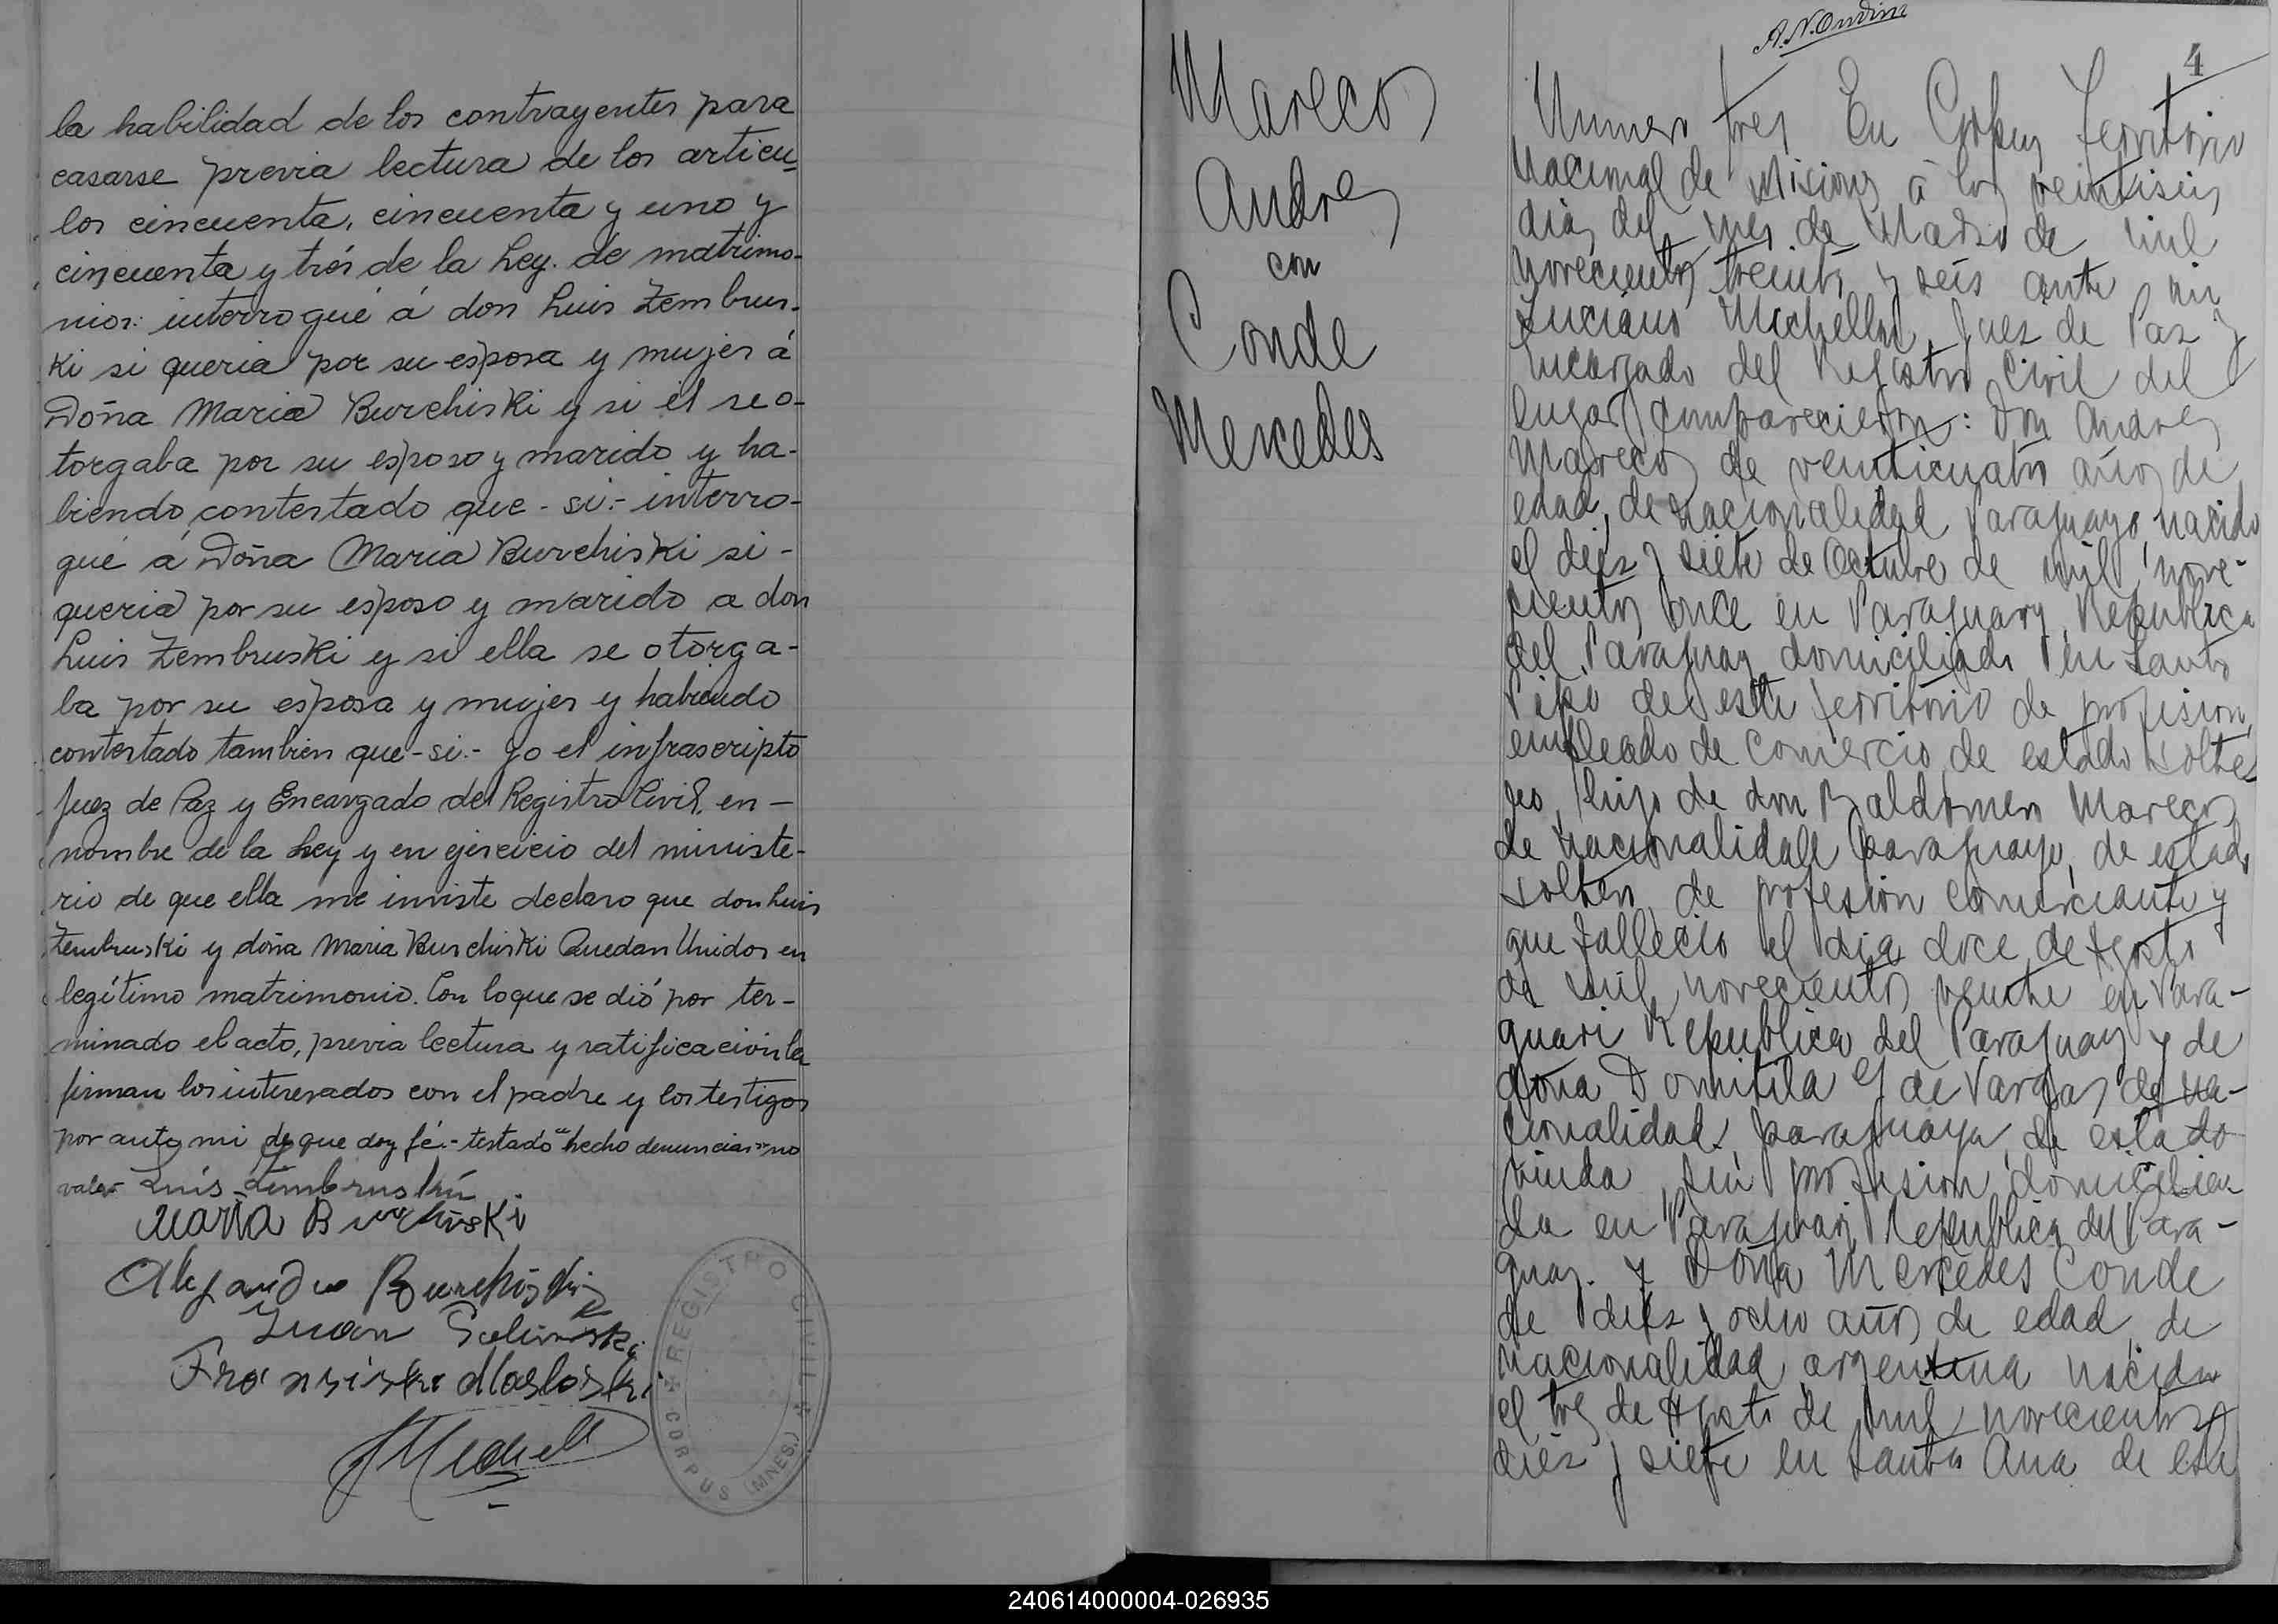 la habilidad de los contrayentes para
casarse previa lectura de los articu-
los cincuenta, cincuenta y uno y
cincuenta y trés de la Ley. de matrimo-
nios: interrogué á don Luis Zembrus-
ki si queria por su esposa y mujer á
Doña Maria Burchiski y si él se o-
torgaba por su esposo y marido y ha-
biendo contestado que - si:- interro-
qué á Doña Maria Burchiski si -
queria por su esposo y marido a don
Luis Zembruski y si ella se otorga-
ba por su esposa y mujer y habiendo
contestado tambien que - si.- Yo el infrascripto
Juez de Paz y Encargado del Registro Civil, en -
nombre de la Ley y en ejercicio del ministe-
rio de que ella me inviste declaro que don Luis
Zembruski y doña Maria Burchiski Quedan Unidos en
legítimo matrimonio. Con loque se dió por ter-
minado el acto, previa lectura y ratificación la
firman los interesados con el padre y los testigos
por ante mi de que doy fé.- testado "hecho denuncias" no
vale- Luis Zembruski
Maria Burchiski
Alejandro Burchiski
Juan
REGISTRO CIVIL
CORPUS (MNES.)
A. N. Ondina
4
Mareco
Andres
con
Conde
Mercedes
Numero tres En Corpus Territorio
Nacional de Misiones á los veintiseis
dias del mes de Marzo de mil
novecientos treinta y seis ante mi
Luciano Michellod, Juez de Paz y
encargado del Registro Civil del
lugar, comparecieron: Don Andres
Mareco de veinticuatro años de
edad, de nacionalidad Paraguayo, nacido
el diez y siete de Octubre de mil nove-
cientos once en Paraguary, Republica
del Paraguay domiciliado en Santo
Pipó de este territorio de profesion
empleado de comercio de estado solte-
ro, hijo de don Baldomero Mareco
de nacionalidad paraguayo, de estado
soltero, de profesion comerciante y
que fallecio el dia doce de Agosto
de mil novecientos veinte en Para-
guari Republica del Paraguay y de
doña Domitila G de Vargas de na-
cionalidad paraguaya, de estado
viuda sin profesion, domicilia-
da en Paraguari Republica del Para-
guay. Y Doña Mercedes Conde
de diez y ocho años de edad, de
nacionalidad argentina nacida
el tres de Agosto de mil novecientos
diez y siete en Santa Ana de este
240614000004-026935